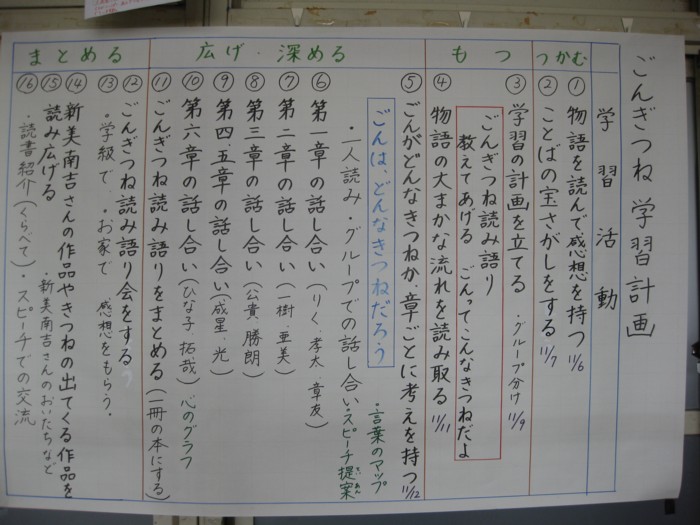 ごんぎつね学習計画
学習活動
つかむ
①物語を読んで感想を持つ 11/6
②ことばの宝さがしをする 11/7
もつ
③学習の計画を立てる ・グループ分け 11/9
ごんぎつね読み語り
教えてあげる ごんってこんなきつねだよ
④物語の大まかな流れを読み取る 11/11
広げ・深める
⑤ごんがどんなきつねか、章ごとに考えを持つ 11/12
ごんは、どんなきつねだろう
・言葉のマップ
・一人読み・グループでの話し合い・スピーチ提案
ていあん
⑥第一章の話し合い(りく、孝太、章友)
⑦第二章の話し合い(一樹・亜美)
⑧第三章の話し合い(公貴、勝朗)
⑨第四、五章の話し合い(成星、光)
⑩第六章の話し合い(ひな子、拓哉) 心のグラフ
⑪ごんぎつね読み語りをまとめる(一冊の本にする)
まとめる
⑫ごんぎつね読み語り会をする
⑬・学級で、・お家で 感想をもらう・
⑭新美南吉さんの作品やきつねの出てくる作品を
⑮読み広げる ・新美南吉さんのおいたちなど
⑯・読書紹介(くらべて)・スピーチでの交流